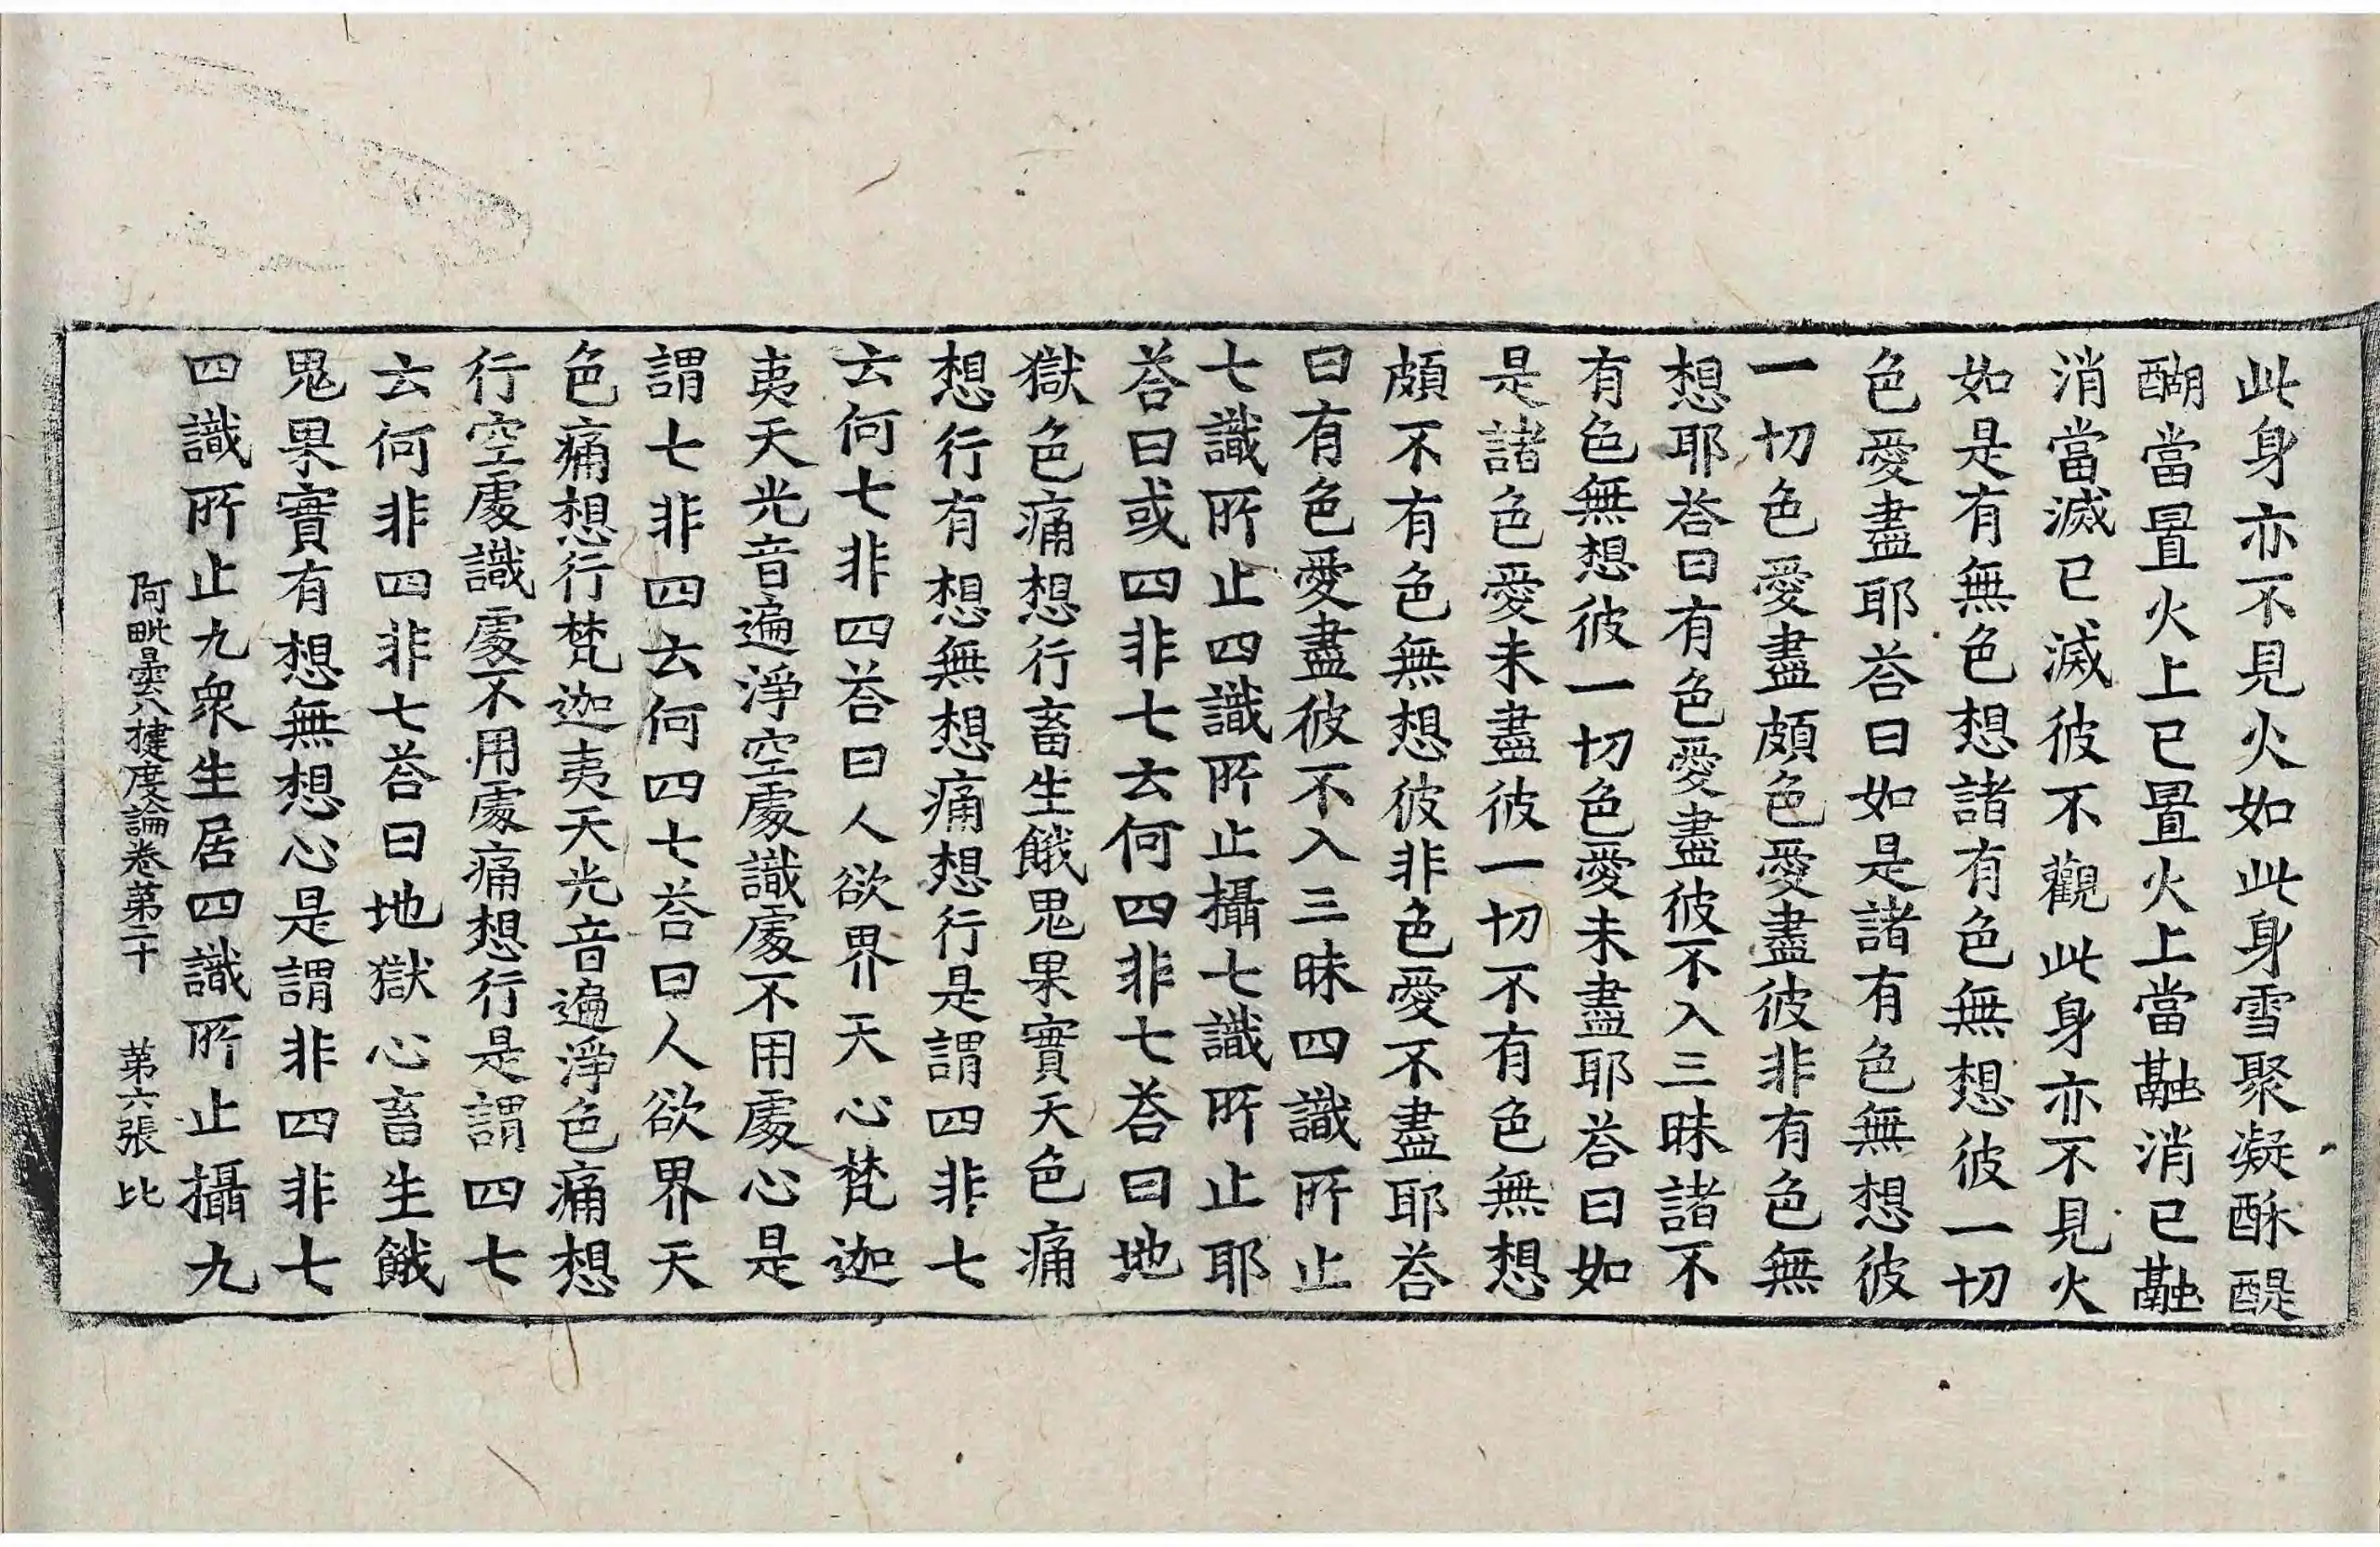 此身亦不見火如此身雪聚凝酥醍
醐當置火上已置火上當融消已融
消當滅已滅彼不觀此身亦不見火
如是有無色想諸有色無想彼一切
色愛盡耶荅曰如是諸有色無想彼
一切色愛盡頗色愛盡彼非有色無
想耶荅曰有色愛盡彼不入三昧諸不
有色無想彼一切色愛未盡耶荅曰如
是諸色愛未盡彼一切不有色無想
頗不有色無想彼非色愛不盡耶荅
曰有色愛盡彼不入三昧四識所止
七識所止四識所止攝七識所止耶
荅曰或四非七云何四非七荅曰地
獄色痛想行畜生餓鬼果實天色痛
想行有想無想痛想行是謂四非七
云何七非四荅曰人欲界天心梵迦
夷天光音遍淨空處識處不用處心是
謂七非四云何四七荅曰人欲界天
色痛想行梵迦夷天光音遍淨色痛想
行空處識處不用處痛想行是謂四七
云何非四非七荅曰地獄心畜生餓
鬼果實有想無想心是謂非四非七
四識所止九衆生居四識所止攝九
阿毗曇八揵度論卷第二十　第六張　比